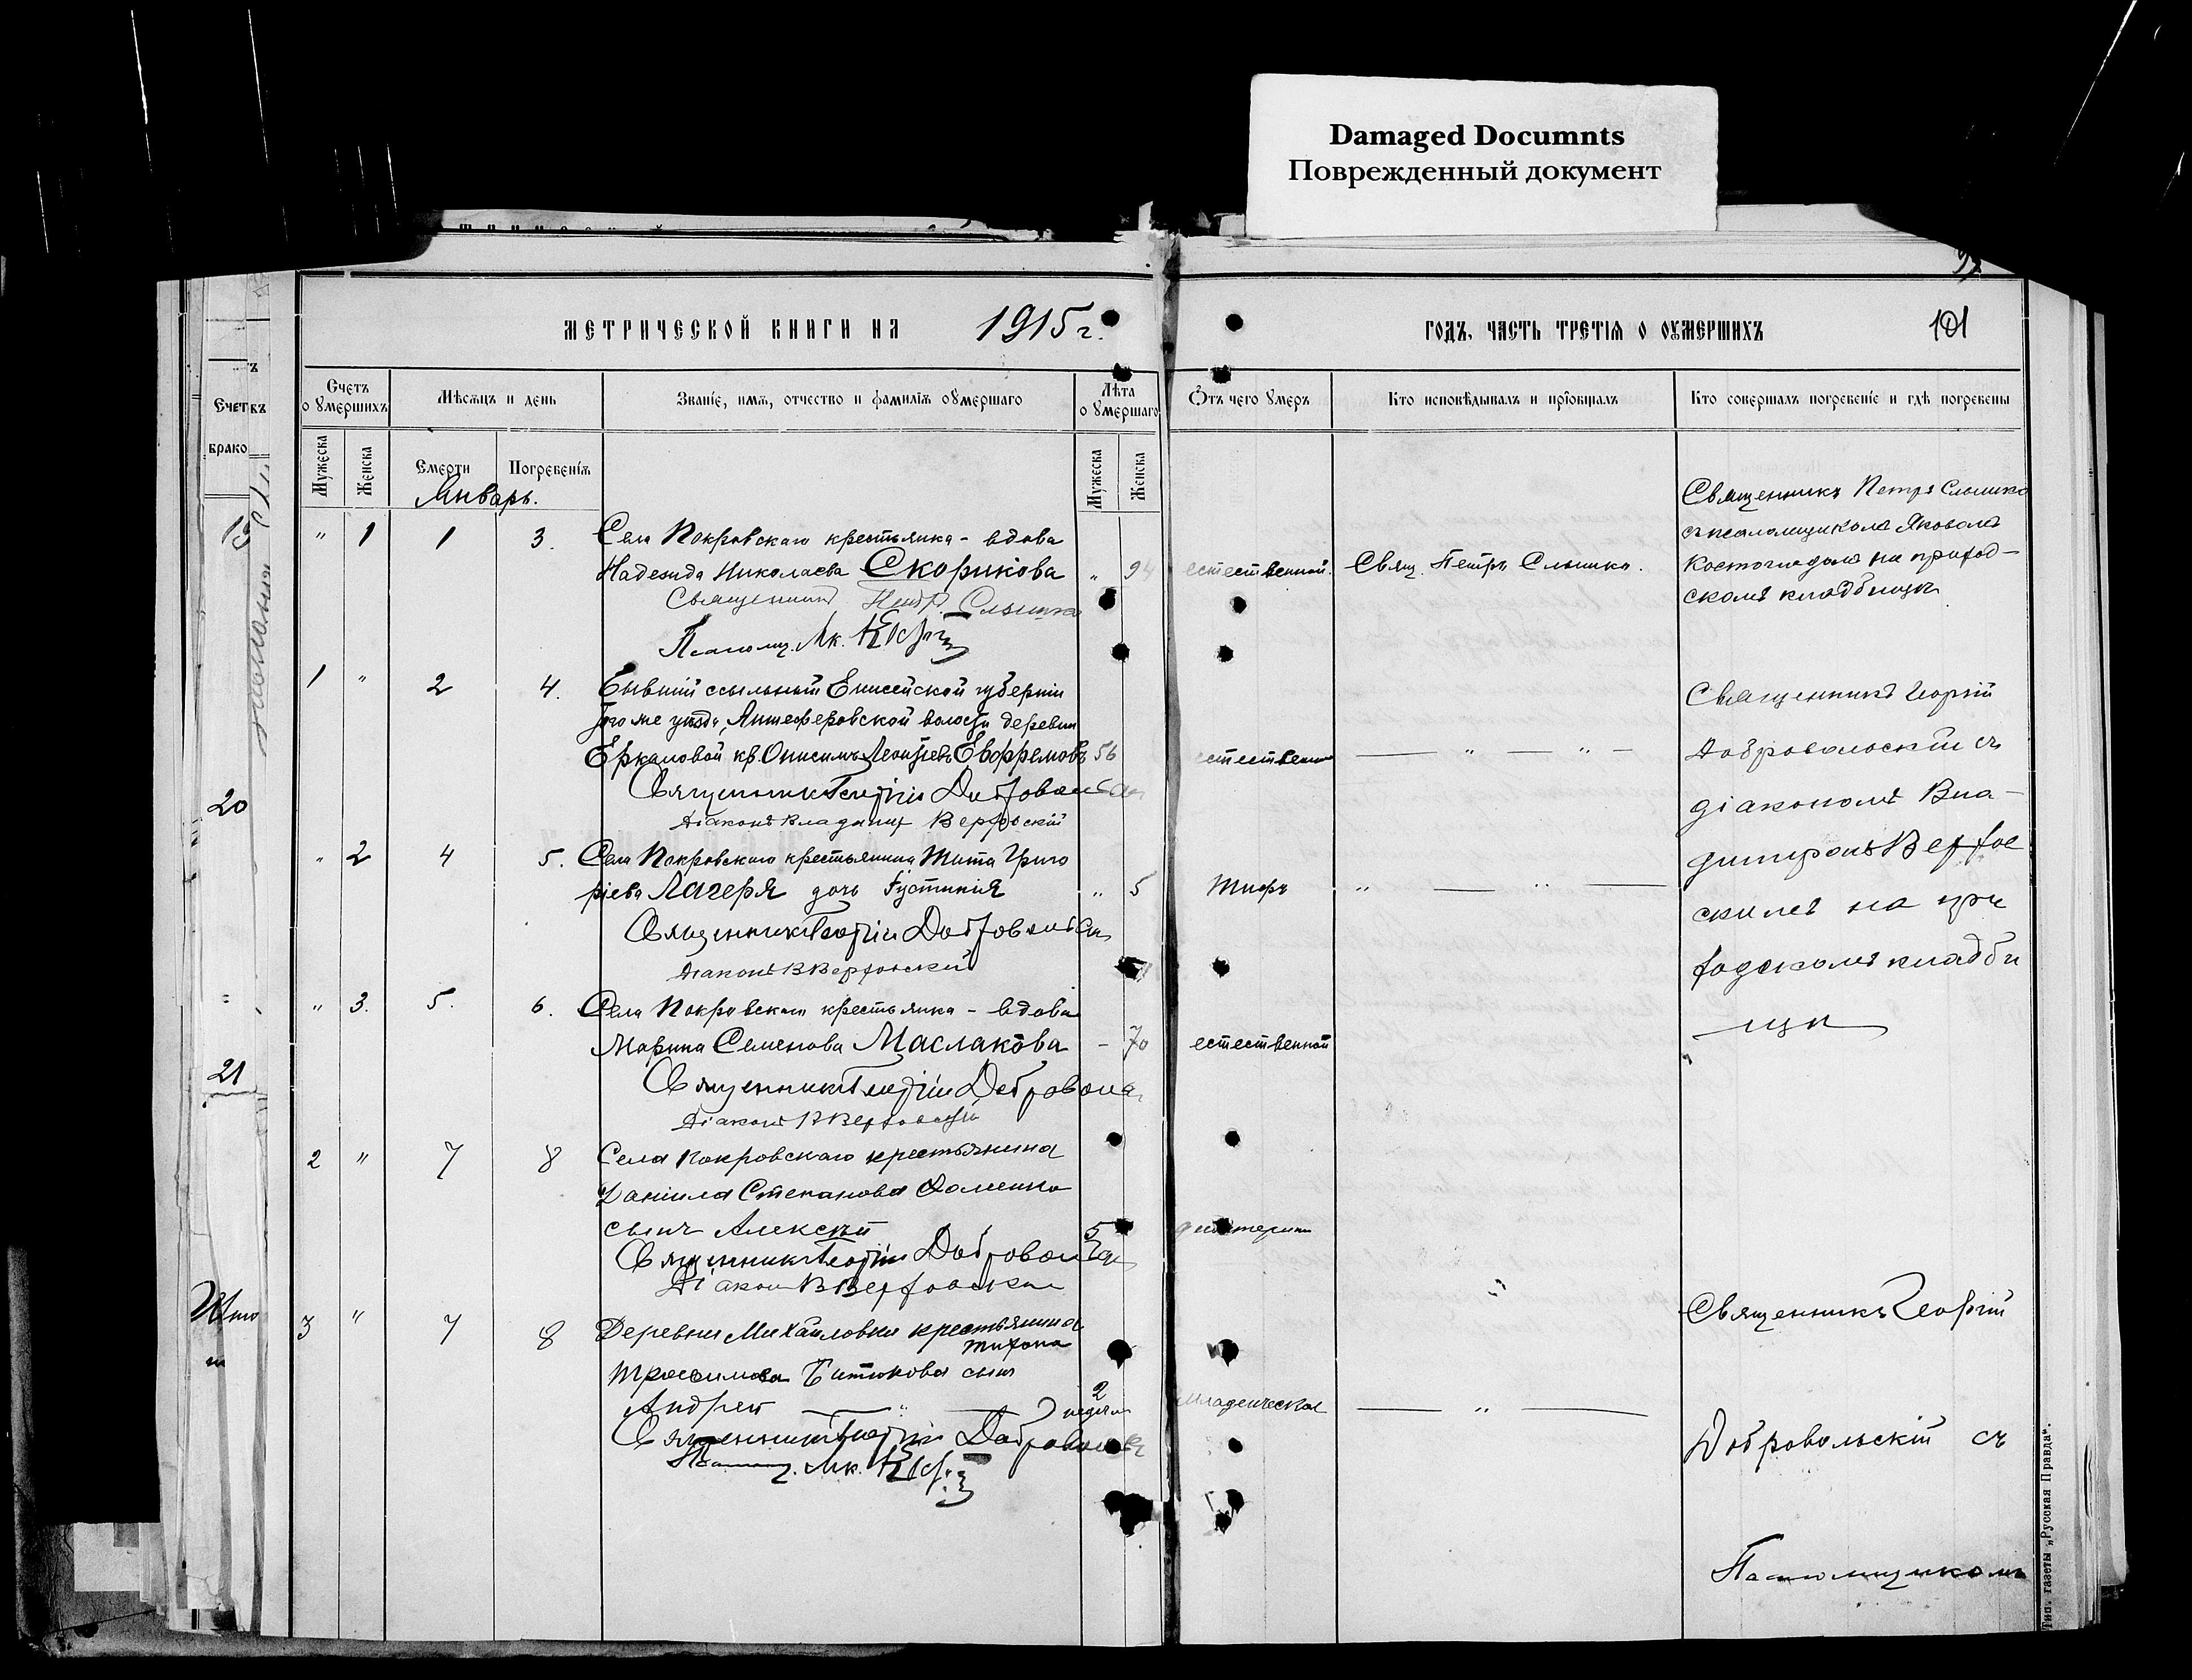 Damaged Documnts
Поврежденный документ
МЕТРИЧЕСКОЙ КНИГИ НА 1915 г.
ГОДЪ, ЧАСТЬ ТРЕТІЯ О ОУМЕРШИХЪ
101
Счетъ о умершихъ
Мѣсяцъ и день
Званіе, имя, отчество и фамилія оумершаго
Лѣта о умершаго
Отъ чего умеръ
Кто исповѣдывалъ и пріобщалъ
Кто совершалъ погребеніе и гдѣ погребены
Счет
брако
Мужеска
Женска
Смерти
Погребенія
Мужеска
Женска
Январь.
" 1 1 3. Села Покровскаго крестьянка - вдова
Надежда Николаева Скорикова " 94 естественной. Свящ. Петръ Слышко.
Священникъ Петръ Слышко
Псаломщ. Як.
Священникъ Петръ Слышко
съ псаломщикомъ Яковомъ
на приход-
скомъ кладбищѣ
1 " 2 4. Бывшій ссыльный Енисейской губерніи
того же уѣзда, Анцеферовской волости деревни
Еркаловой кр. Онисимъ Леонтьевъ Евффремовъ 56 естественно — " — " —
Священникъ Георгій Добровольскій
Діаконъ Владиміръ Верховскій
20
" 2 4 5. Села Покровскаго крестьянина Тита Григо
ріева Лагеря дочь Іустинія " 5 тифъ " — " —
Священникъ Георгій Добровольскій
Діаконъ В Верховскій
Священникъ Георгій
Добровольскій съ
діакономъ Вла-
диміромъ Верхов
скимъ на при
ходскомъ кладби
щѣ
" 3. 5. 6. Села Покровскаго крестьянка - вдова
Марина Семенова Маслакова - 70 естественной
Священникъ Георгій Доброволь
Діаконъ В Верховскій
21
2 " 7 8 Села Покровскаго крестьянина
Даніила Степанова Фоменко
сынъ Алексѣй 5
Священникъ Георгій Добровольскій
Діаконъ В Верховскій
Итого
3 " 7 8 Деревни Михайловки крестьянина
Тихона
Трофимова Битюкова сынъ
Андрей — " — 2 недѣли младенческая — " —
Священникъ Георгій Добровольскій
Як.
Священникъ Георгій
Добровольскій съ
Псаломщикомъ
Тип. газеты „Русская Правда".